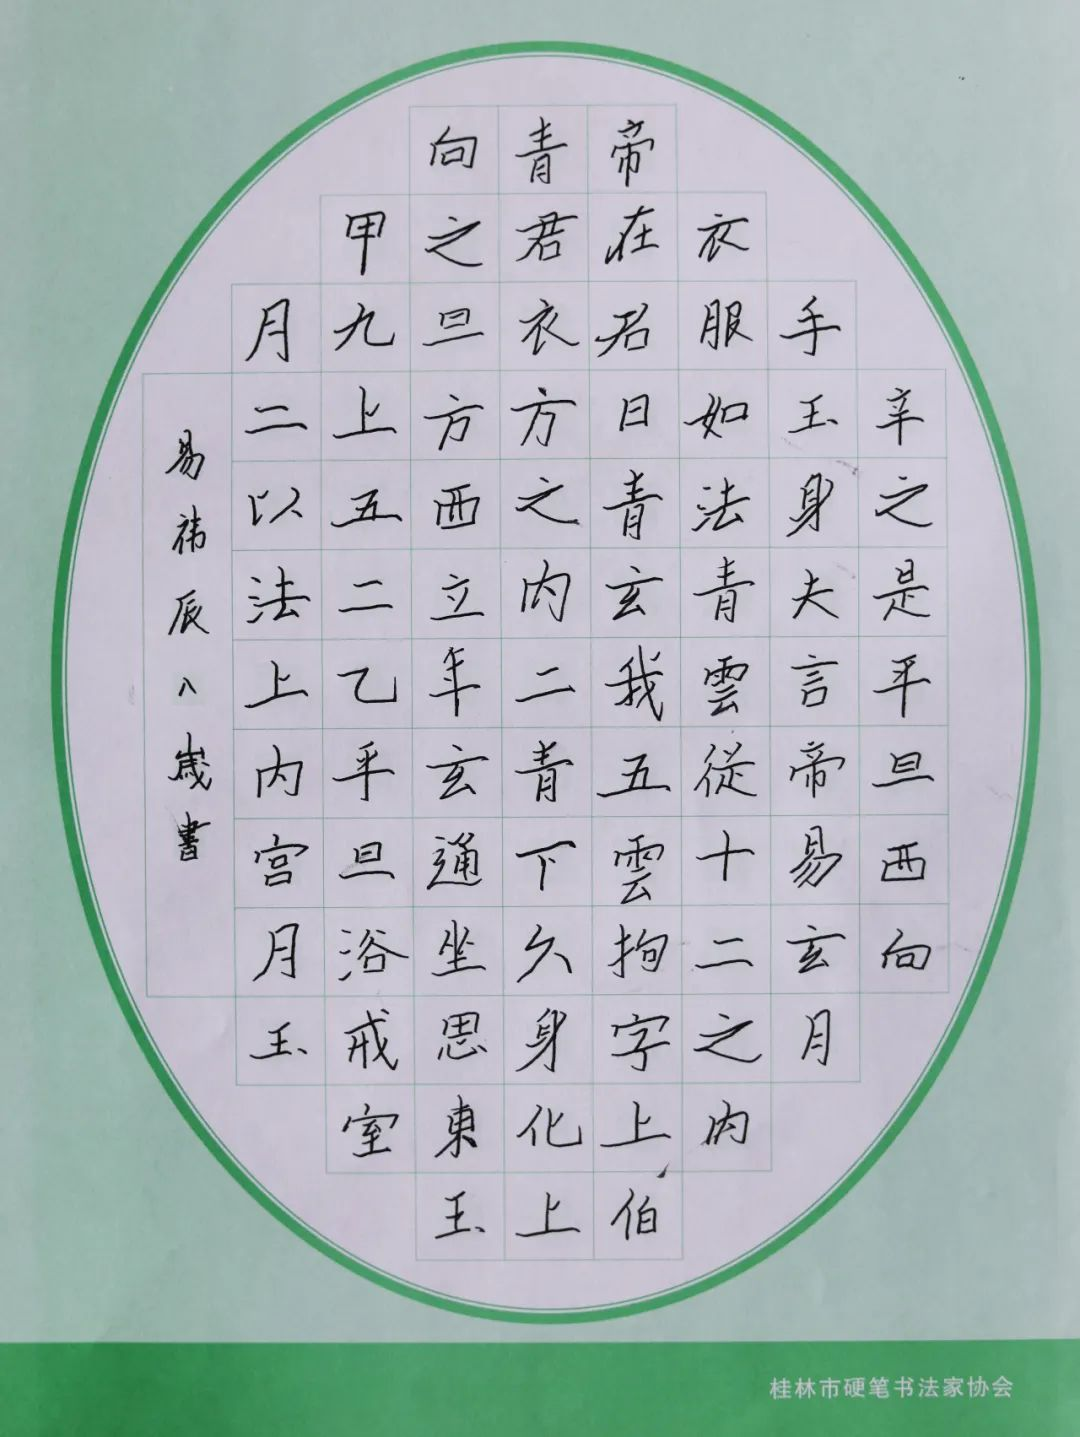 辛之是平旦西向
手玉身夫言帝易玄月
衣服如法青雲從十二之内
帝在君日青玄我五雲拘字上伯
青君衣方之内二青下久身化上
向之旦方西立年玄通坐思東玉
甲九上五二乙平旦浴戒室
月二以法上内宫月玉
易祎辰八歲書
桂林市硬笔书法家协会